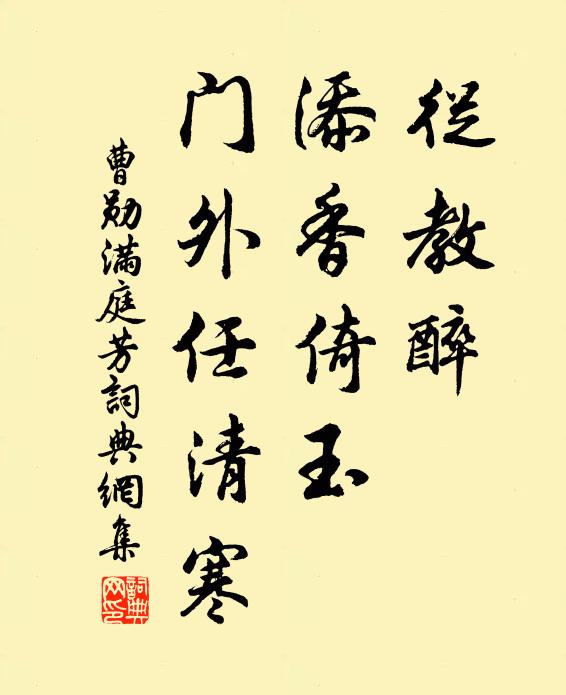 從教醉
添香倚玉
门外任清寒
曹勋滿庭芳詞典網集
詞典网印